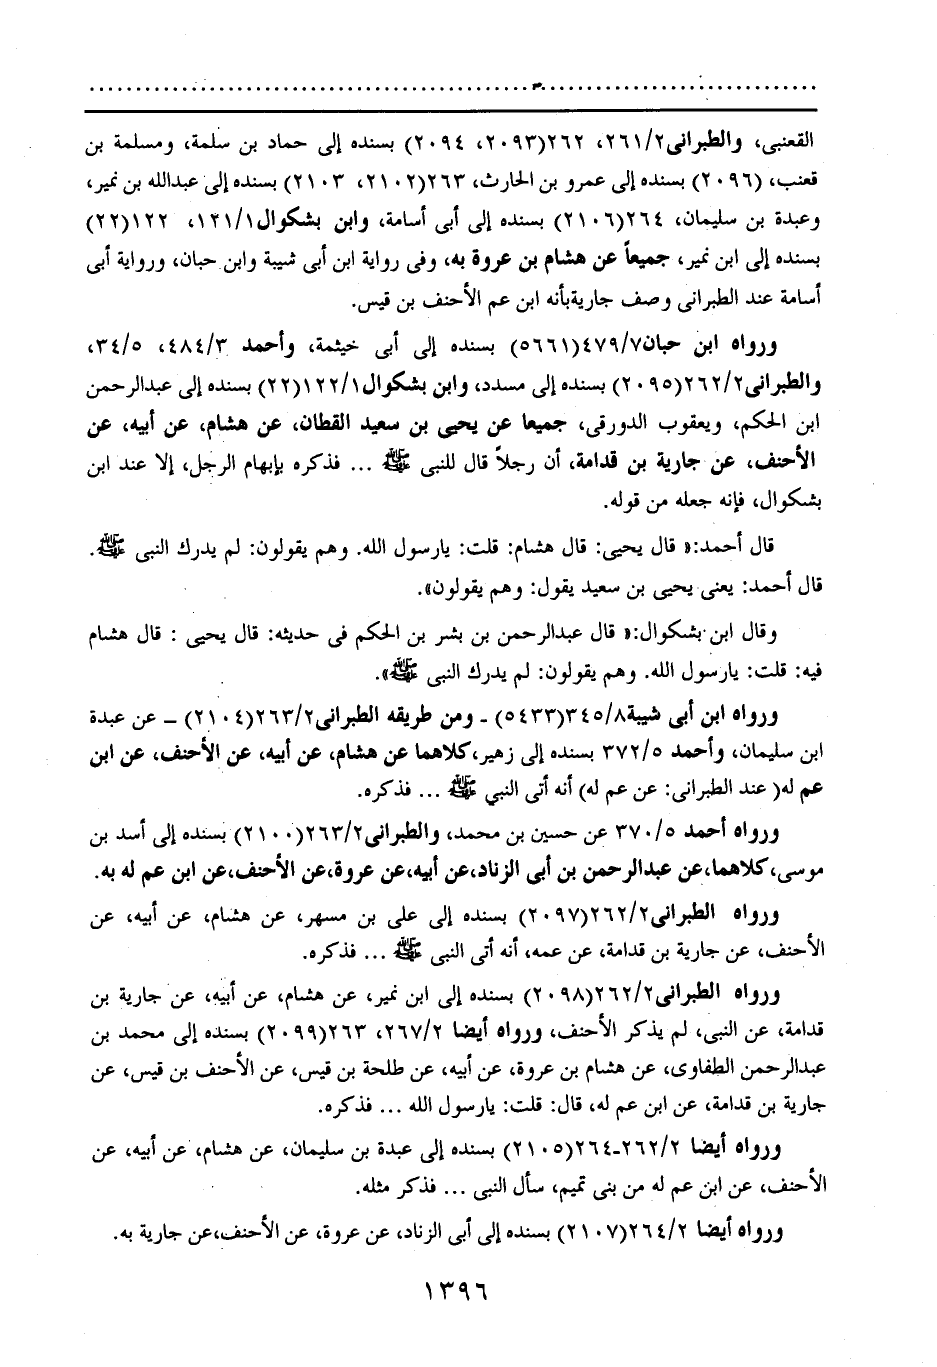 القعنبى، والطبرانى٢٦١/٢، ٢٦٢(٢٠٩٣، ٢٠٩٤) بسنده إلى حماد بن سلمة، ومسلمة بن
قعنب، (٢٠٩٦) بسنده إلى عمرو بن الحارث، ٢٦٣(٢١٠٢، ٢١٠٣) بسنده إلى عبدالله بن نمير،
وعبدة بن سليمان، ٢٦٤(٢١٠٦) بسنده إلى أبى أسامة، وابن بشكوال١٢١/١، ١٢٢(٢٢)
بسنده إلى ابن نمير، جميعاً عن هشام بن عروة به، وفى رواية ابن أبى شيبة وابن حبان، ورواية أبى
أسامة عند الطبرانى وصف جاريةبأنه ابن عم الأحنف بن قيس.
ورواه ابن حبان٤٧٩/٧(٥٦٦١) بسنده إلى أبى خيثمة، وأحمد ٤٨٤/٣، ٣٤/٥،
والطبرانى٢٦٢/٢(٢٠٩٥) بسنده إلى مسدد، وابن بشكوال١٢٢/١(٢٢) بسنده إلى عبدالرحمن
ابن الحكم، ويعقوب الدورقى، جميعا عن يحيى بن سعيد القطان، عن هشام، عن أبيه، عن
الأحنف، عن جارية بن قدامة، أن رجلاً قال للنبى ﷺ ... فذكره بإبهام الرجل، إلا عند ابن
بشكوال، فإنه جعله من قوله.
قال أحمد:« قال يحيى: قال هشام: قلت: يارسول الله. وهم يقولون: لم يدرك النبى ﷺ.
قال أحمد: يعنى يحيى بن سعيد يقول: وهم يقولون».
وقال ابن بشكوال:« قال عبدالرحمن بن بشر بن الحكم فى حديثه: قال يحيى : قال هشام
فيه: قلت: يارسول الله. وهم يقولون: لم يدرك النبى ﷺ».
ورواه ابن أبى شيبة٣٤٥/٨(٥٤٣٣) ـ ومن طريقه الطبرانى٢٦٣/٢(٢١٠٤) – عن عبدة
ابن سليمان، وأحمد ٣٧٢/٥ بسنده إلى زهير،كلاهما عن هشام، عن أبيه، عن الأحنف، عن ابن
عم له( عند الطبرانى: عن عم له) أنه أتى النبي ﷺ ... فذكره.
ورواه أحمد ٣٧٠/٥ عن حسين بن محمد، والطبرانى٢٦٣/٢(٢١٠٠) بسنده إلى أسد بن
موسى،كلاهما،عن عبدالرحمن بن أبى الزناد،عن أبيه،عن عروة،عن الأحنف،عن ابن عم له به.
ورواه الطبرانى٢٦٢/٢(٢٠٩٧) بسنده إلى على بن مسهر، عن هشام، عن أبيه، عن
الأحنف، عن جارية بن قدامة، عن عمه، أنه أتى النبى ﷺ ... فذكره.
ورواه الطبرانى٢٦٢/٢(٢٠٩٨) بسنده إلى ابن نمير، عن هشام، عن أبيه، عن جارية بن
قدامة، عن النبى، لم يذكر الأحنف، ورواه أيضا ٢٦٧/٢، ٢٦٣(٢٠٩٩) بسنده إلى محمد بن
عبدالرحمن الطفاوى، عن هشام بن عروة، عن أبيه، عن طلحة بن قيس، عن الأحنف بن قيس، عن
جارية بن قدامة، عن ابن عم له، قال: قلت: يارسول الله ... فذكره.
ورواه أيضا ٢٦٢/٢-٢٦٤(٢١٠٥) بسنده إلى عبدة بن سليمان، عن هشام، عن أبيه، عن
الأحنف، عن ابن عم له من بنى تميم، سأل النبى ... فذكر مثله.
ورواه أيضا ٢٦٤/٢(٢١٠٧) بسنده إلى أبى الزناد، عن عروة، عن الأحنف،عن جارية به.
١٣٩٦